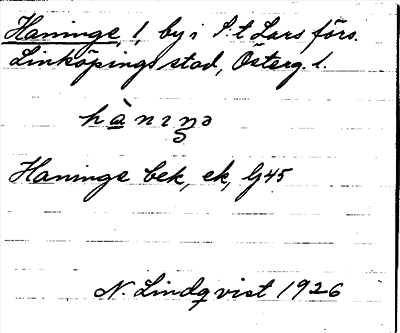 Haninge, 1, by i S:t Lars förs.
Linköpings stad, Österg. l.
hànıŋə
Haninge bek, ek, G45
N. Lindqvist 1926